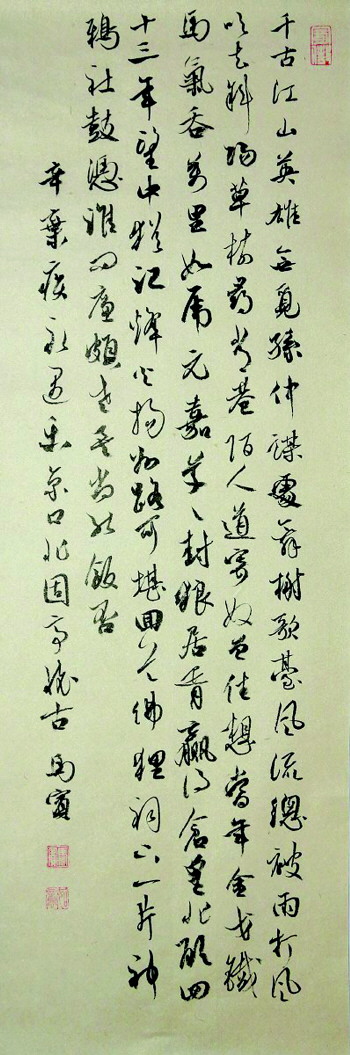 千古江山英雄無覓孫仲謀處舞榭歌臺風流總被雨打風
吹去斜陽草樹尋常巷陌人道寄奴曾住想當年金戈鐵
馬氣吞萬里如虎元嘉草々封狼居胥贏得倉皇北顧四
十三年望中猶記烽火揚州路可堪回首佛狸祠下一片神
鴉社鼓憑誰問廉頗老矣尚能飯否
辛棄疾永遇樂京口北固亭懷古 馬賓